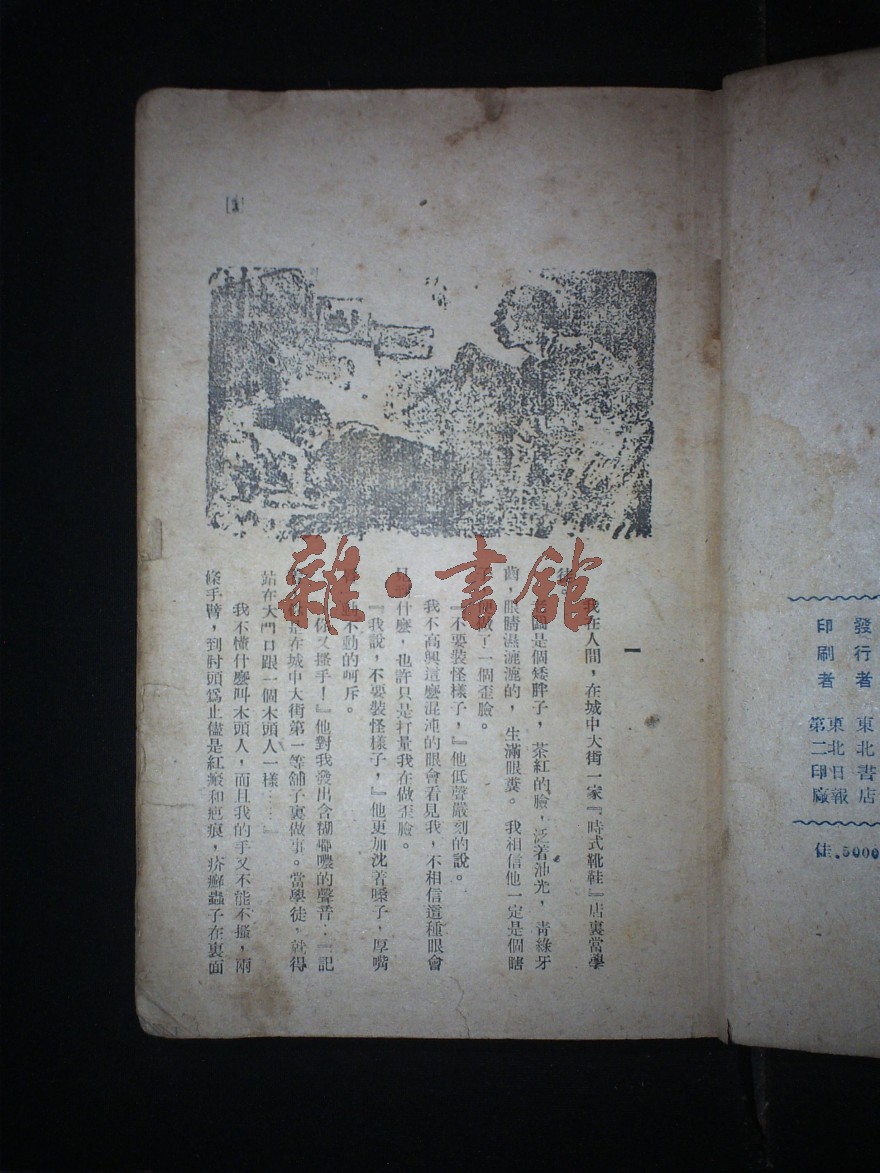 發行者 東北書店
印刷者 東北日報
第二印廠
佳.5000
[1]
一
我在人間，在城中大街一家『時式靴鞋』店裏當學
徒。
是個矮胖子，茶紅的臉，泛着油光，青綠牙
齒，眼睛濕漉漉的，生滿眼糞。我相信他一定是個瞎
做了一個歪臉。
『不要裝怪樣子，』他低聲嚴刻的說。
我不高興這麽混沌的眼會看見我，不相信這種眼會
什麽，也許只是打量我在做歪臉。
『我說，不要裝怪樣子，』他更加沈着嗓子，厚嘴
動不動的呵斥。
你又搔手！』他對我發出含糊嘟噥的聲音：『記
是在城中大街第一等舖子裏做事。當學徒，就得
站在大門口跟一個木頭人一樣……』
我不懂什麽叫木頭人，而且我的手又不能不搔，兩
條手臂，到肘頭爲止儘是紅瘢和疤痕，疥癬蟲子在裏面
雜·書館